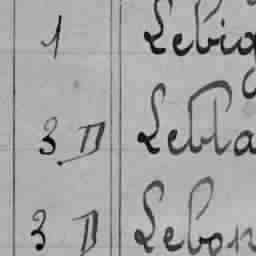 1 Lebig
3 II Lebla
3 II Lebon